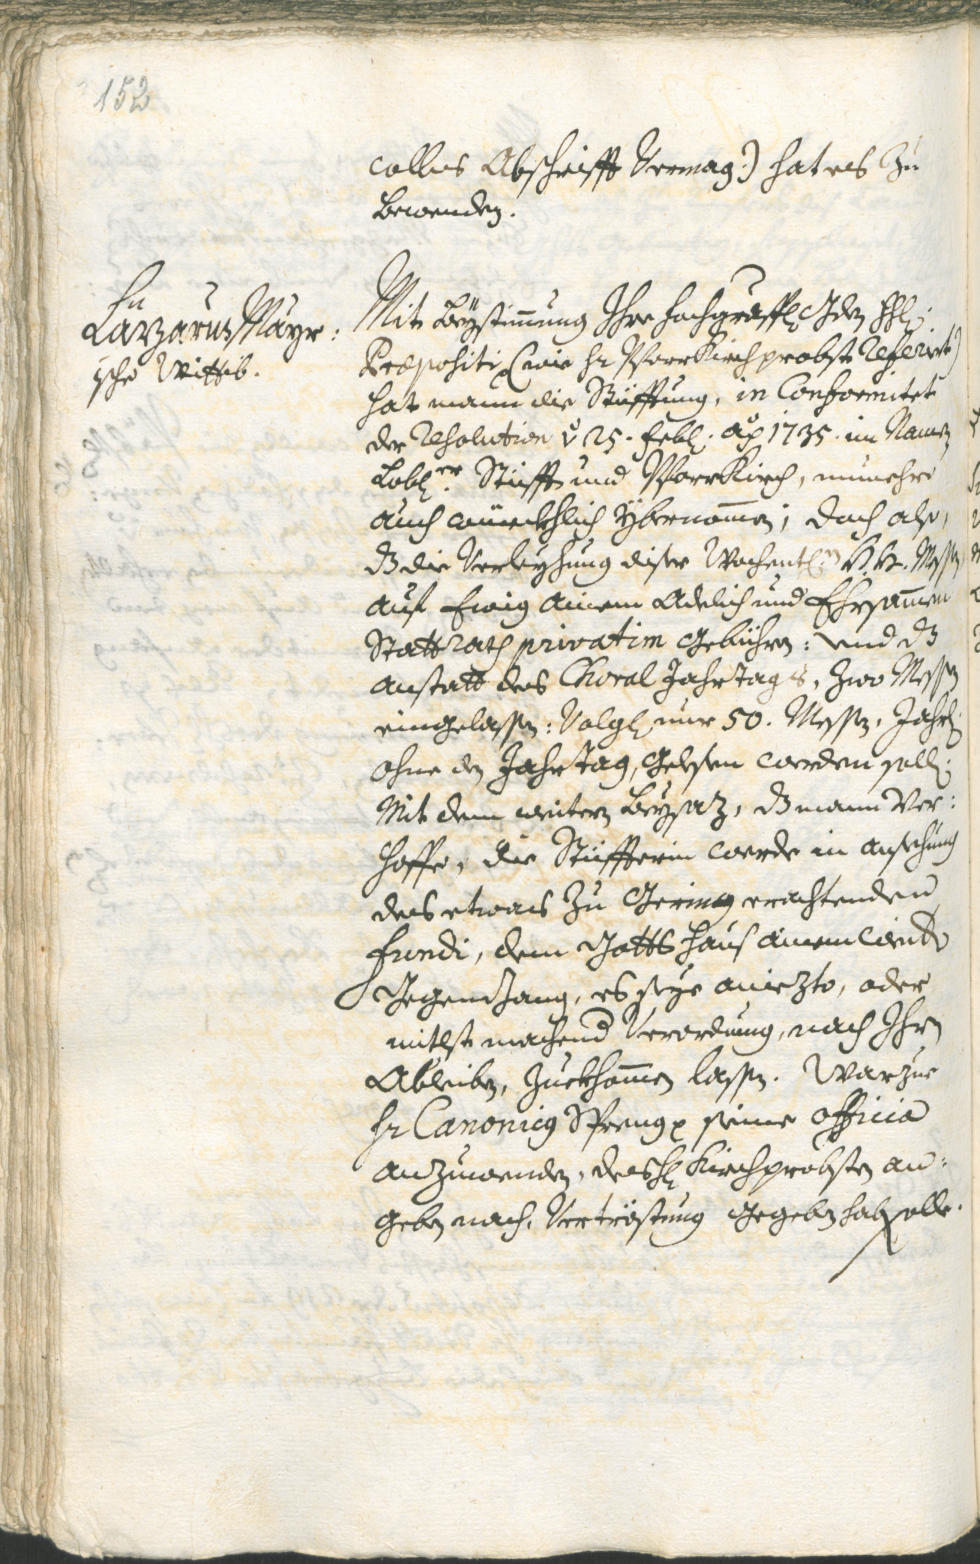 152
collis Abschrifft Vermag:) hat es Zu
bewenden.
Fr
Lazarus Mäyr:
ische Wittib.
Mit Beÿstimmung Ihro hochgräffl: Gden
Praepositi (wie Hr Pfarr Kirchprobst Referirt)
hat mann die Stüfftung, in Conformitet
der Resolution v 25. Febr: ao 1735. im Namen
Lobl:er Stifft und Pfarr Kirch, nunmehro
auch würckhlich ÿbernommen; doch also,
dß die Verleyhung diser Wochentl:n H.H. Messen
auf Ewig ainem Adelich und Ehrsammen
Statt Rath privatim gebühren: und dß
anstatt des Choral Jahrtags, Zwo Messen
eingelassen: Volgl: nur 50. Messen, Jährl:
ohne den Jahrtag, gelesen werden solle:
Mit dem weitern Beysaz, dß mann Ver:
hoffe, die Stüffterin werde in ansehung
des etwas Zu gering erachtenden
fundi, dem Gotts Haus ainem
es seye aniezto, oder
mitlst machend Verordnung, nach Ihren
Ableiben, Zuekhommen lassen. Warzue
Hr Canonicus Spreng seine officia
anzuwenden, des Hl: Kirchprobsten an:
geben nach, Vertröstung gegeben hab solle.